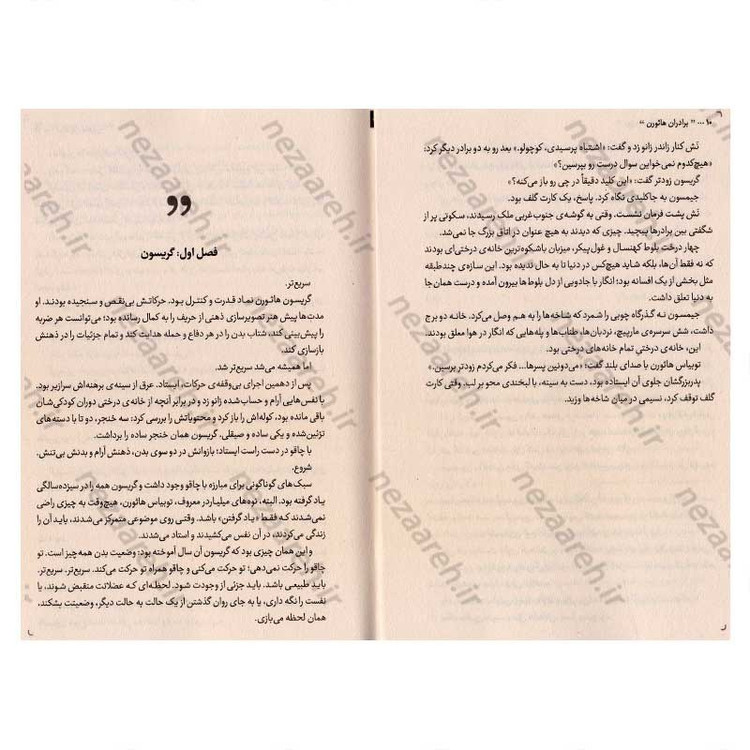 ۱۰ ... " برادران هاثورن "
نَش کنار زاندر زانو زد و گفت: «اشتباه پرسیدی، کوچولو.» بعد رو به دو برادر دیگر کرد:
«هیچ‌کدوم نمی‌خواین سوال درست رو بپرسین؟»
گریسون زودتر گفت: «این کلید دقیقاً در چی رو باز می‌کنه؟»
جیمسون به جاکلیدی نگاه کرد. پاسخ، یک کارت گلف بود.
نَش پشت فرمان نشست. وقتی به گوشه‌ی جنوب‌غربی ملک رسیدند، سکوتی پر از
شگفتی بین برادرها پیچید. چیزی که دیدند به هیچ عنوان در اتاق بزرگ جا نمی‌شد.
چهار درخت بلوط کهنسال و غول‌پیکر، میزبان باشکوه‌ترین خانه‌ی درختی‌ای بودند
که نه فقط آن‌ها، بلکه شاید هیچ‌کس در دنیا تا به حال ندیده بود. این سازه‌ی چندطبقه
مثل بخشی از یک افسانه بود؛ انگار با جادویی از دل بلوط‌ها بیرون آمده و درست همان جا
به دنیا تعلق داشت.
جیمسون نـه گذرگاه چوبی را شمرد که شاخه‌ها را به هم وصل می‌کرد. خانـه دو برج
داشت، شش سرسره‌ی مارپیچ، نردبان‌ها، طناب‌ها و پله‌هایی که انگار در هوا معلق بودند.
این، خانه‌ی درختیِ تمام خانه‌های درختی بود.
توبیاس هاثورن با صدای بلند گفت: «می‌دونین پسرها... فکر می‌کردم زودتر برسین.»
پدربزرگشان جلوی آن ایستاده بود، دست به سینه، با لبخندی محو بر لب. وقتی کارت
گلف توقف کرد، نسیمی در میان شاخه‌ها وزید.
فصل اول: گریسون
سریع‌تر.
گریسون هاثورن نماد قدرت و کنترل بود. حرکاتش بی‌نقص و سنجیده بودنـد. او
مدت‌ها پیش هنر تصویرسازی ذهنی از حریف را به کمال رسانده بود؛ می‌توانست هر ضربه
را پیش‌بینی کند، شتاب بدن را در هر دفاع و حمله هدایت کند و تمام جزئیات را در ذهنش
بازسازی کند.
اما همیشه می‌شد سریع‌تر شد.
پس از دهمین اجرای بی‌وقفه‌ی حرکات، ایستاد. عرق از سینه‌ی برهنه‌اش سرازیر بود.
با نفس‌هایی آرام و حساب‌شده زانو زد و در برابر آنچه از خانه‌ی درختی دوران کودکی‌شان
باقی مانده بود، کوله‌اش را باز کرد و محتویاتش را بررسی کرد: سه خنجر، دو تا با دسته‌های
تزئین‌شده و یکی ساده و صیقلی. گریسون همان خنجر ساده را برداشت.
با چاقو در دست راست ایستاد؛ بازوانش در دو سوی بدن، ذهنش آرام و بدنش بی‌تنش.
شروع.
سبک‌های گوناگونی برای مبارزه با چاقو وجود داشت و گریسون همه را در سیزده‌سالگی
یاد گرفته بود. البته، نوه‌های میلیاردر معروف، توبیاس هاثورن، هیچ‌وقت به چیزی راضی
نمی‌شدند کـه فقط «یـاد گرفتن» باشد. وقتی روی موضوعی متمرکز می‌شدند، باید آن را
زندگی می‌کردند، در آن نفس می‌کشیدند و استاد می‌شدند.
و این همان چیزی بود که گریسون آن سال آموخته بود: وضعیت بدن همه‌چیز است. تو
چاقو را حرکت نمی‌دهی؛ تو حرکت می‌کنی و چاقو همراه تو حرکت می‌کند. سریع‌تر. سریع‌تر.
باید طبیعی باشد. باید جزئی از وجودت شود. لحظه‌ای که عضلاتت منقبض شوند، یا
نفست را نگه داری، یا به جای روان گذشتن از یک حالت به حالت دیگر، وضعیتت بشکند،
همان لحظه می‌بازی.
nezaareh.ir